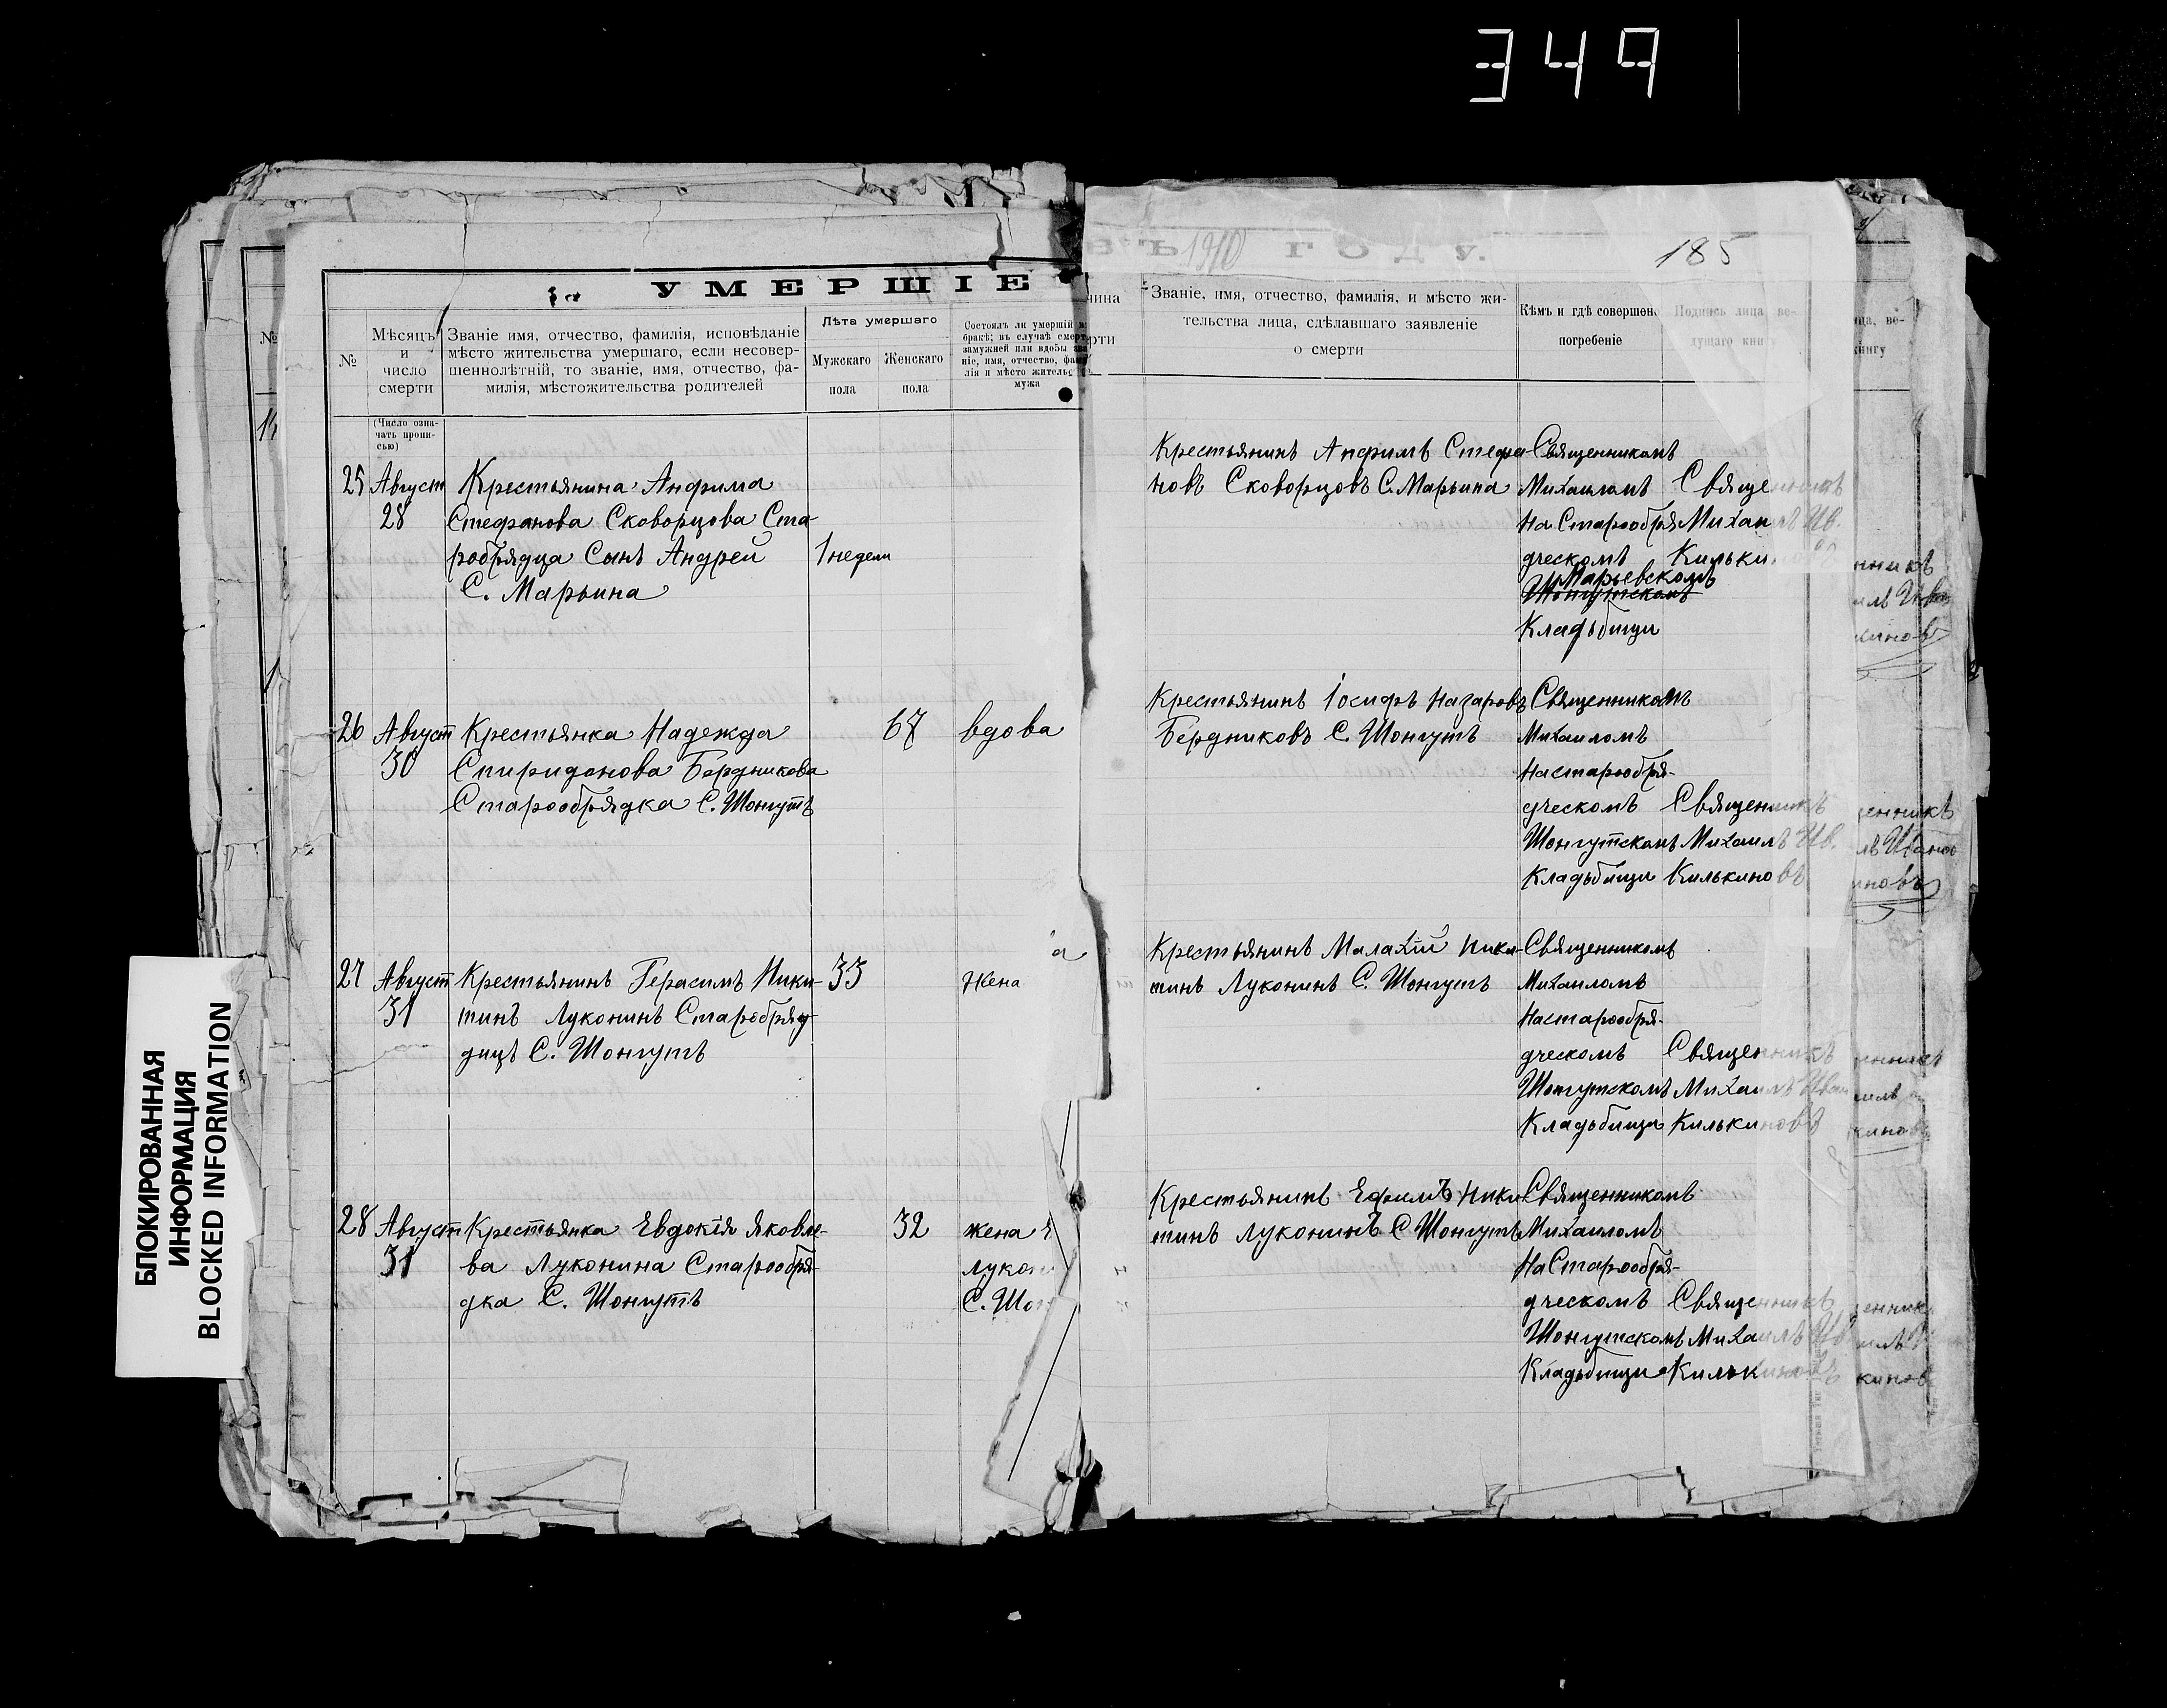 349
185
УМЕРШІЕ
ВЪ 1910 ГОДУ.
№
Мѣсяцъ
и
число
смерти
Званіе имя, отчество, фамилія, исповѣданіе
мѣсто жительства умершаго, если несовер-
шеннолѣтній, то званіе, имя, отчество, фа-
милія, мѣстожительства родителей
Лѣта умершаго
Мужскаго
пола
Женскаго
пола
Состоялъ ли умершій въ
бракѣ; въ случаѣ смерт
замужней или вдовы зва
ніе, имя, отчество, фами
лія и мѣсто жительс
мужа
чина
рти
Званіе, имя, отчество, фамилія, и мѣсто жи-
тельства лица, сдѣлавшаго заявленіе
о смерти
Кѣмъ и гдѣ совершено
погребеніе
Подпись лица ве-
дущаго кни
ца, ве-
книгу
(Число озна-
чать пропи-
сью)
25 Август
28
Крестьянина Анфима
Стефанова Скворцова Ста-
робрядца Сынъ Андрей
С. Марьина
1 недели
Крестьянинъ Анфимъ Стефа-
новъ Сковорцовъ С. Марьина
Священникомъ
Михаиломъ
На Старообря
дческомъ
Марьевскомъ
Шонгутскомъ
Кладьбищи
Священникъ
Михаилъ Ив.
Кильkиновъ
26 Август
30
Крестьянка Надежда
Спиридонова Бердникова
Старообрядка С. Шонгутъ
67
вдова
Крестьянинъ Іосифъ Назаровъ
Бердниковъ С. Шонгутъ
Священникомъ
Михаиломъ
На старообря-
дческомъ
Шонгутскомъ
Кладьбищи
Священникъ
Михаилъ Ив.
Килькиновъ
27 Август
31
Крестьянинъ Герасимъ Ники-
тинъ Луконинъ Старобряд-
дицъ С. Шонгутъ
33
Жена
Крестьянинъ Малахій Ники-
тинъ Луконинъ С. Шонгутъ
Священникомъ
Михаиломъ
На старообря-
дческомъ
Шонгутскомъ
Кладьбища
Священникъ
Михаилъ Иван
Килькиновъ
28 Август
31
Крестьянка Евдокія Яковле-
ва Луконина Старообря-
дка С. Шонгутъ
32
жена
Лукон
С. Шон
Крестьянинъ Ефимъ Ники
тинъ Луконинъ С Шонгутъ
Священникомъ
Михаиломъ
На Старообря-
дческомъ
Шонгутскомъ
Кладьбищи
Священникъ
Михаилъ Ив
Килькиновъ
БЛОКИРОВАННАЯ
ИНФОРМАЦИЯ
BLOCKED INFORMATION